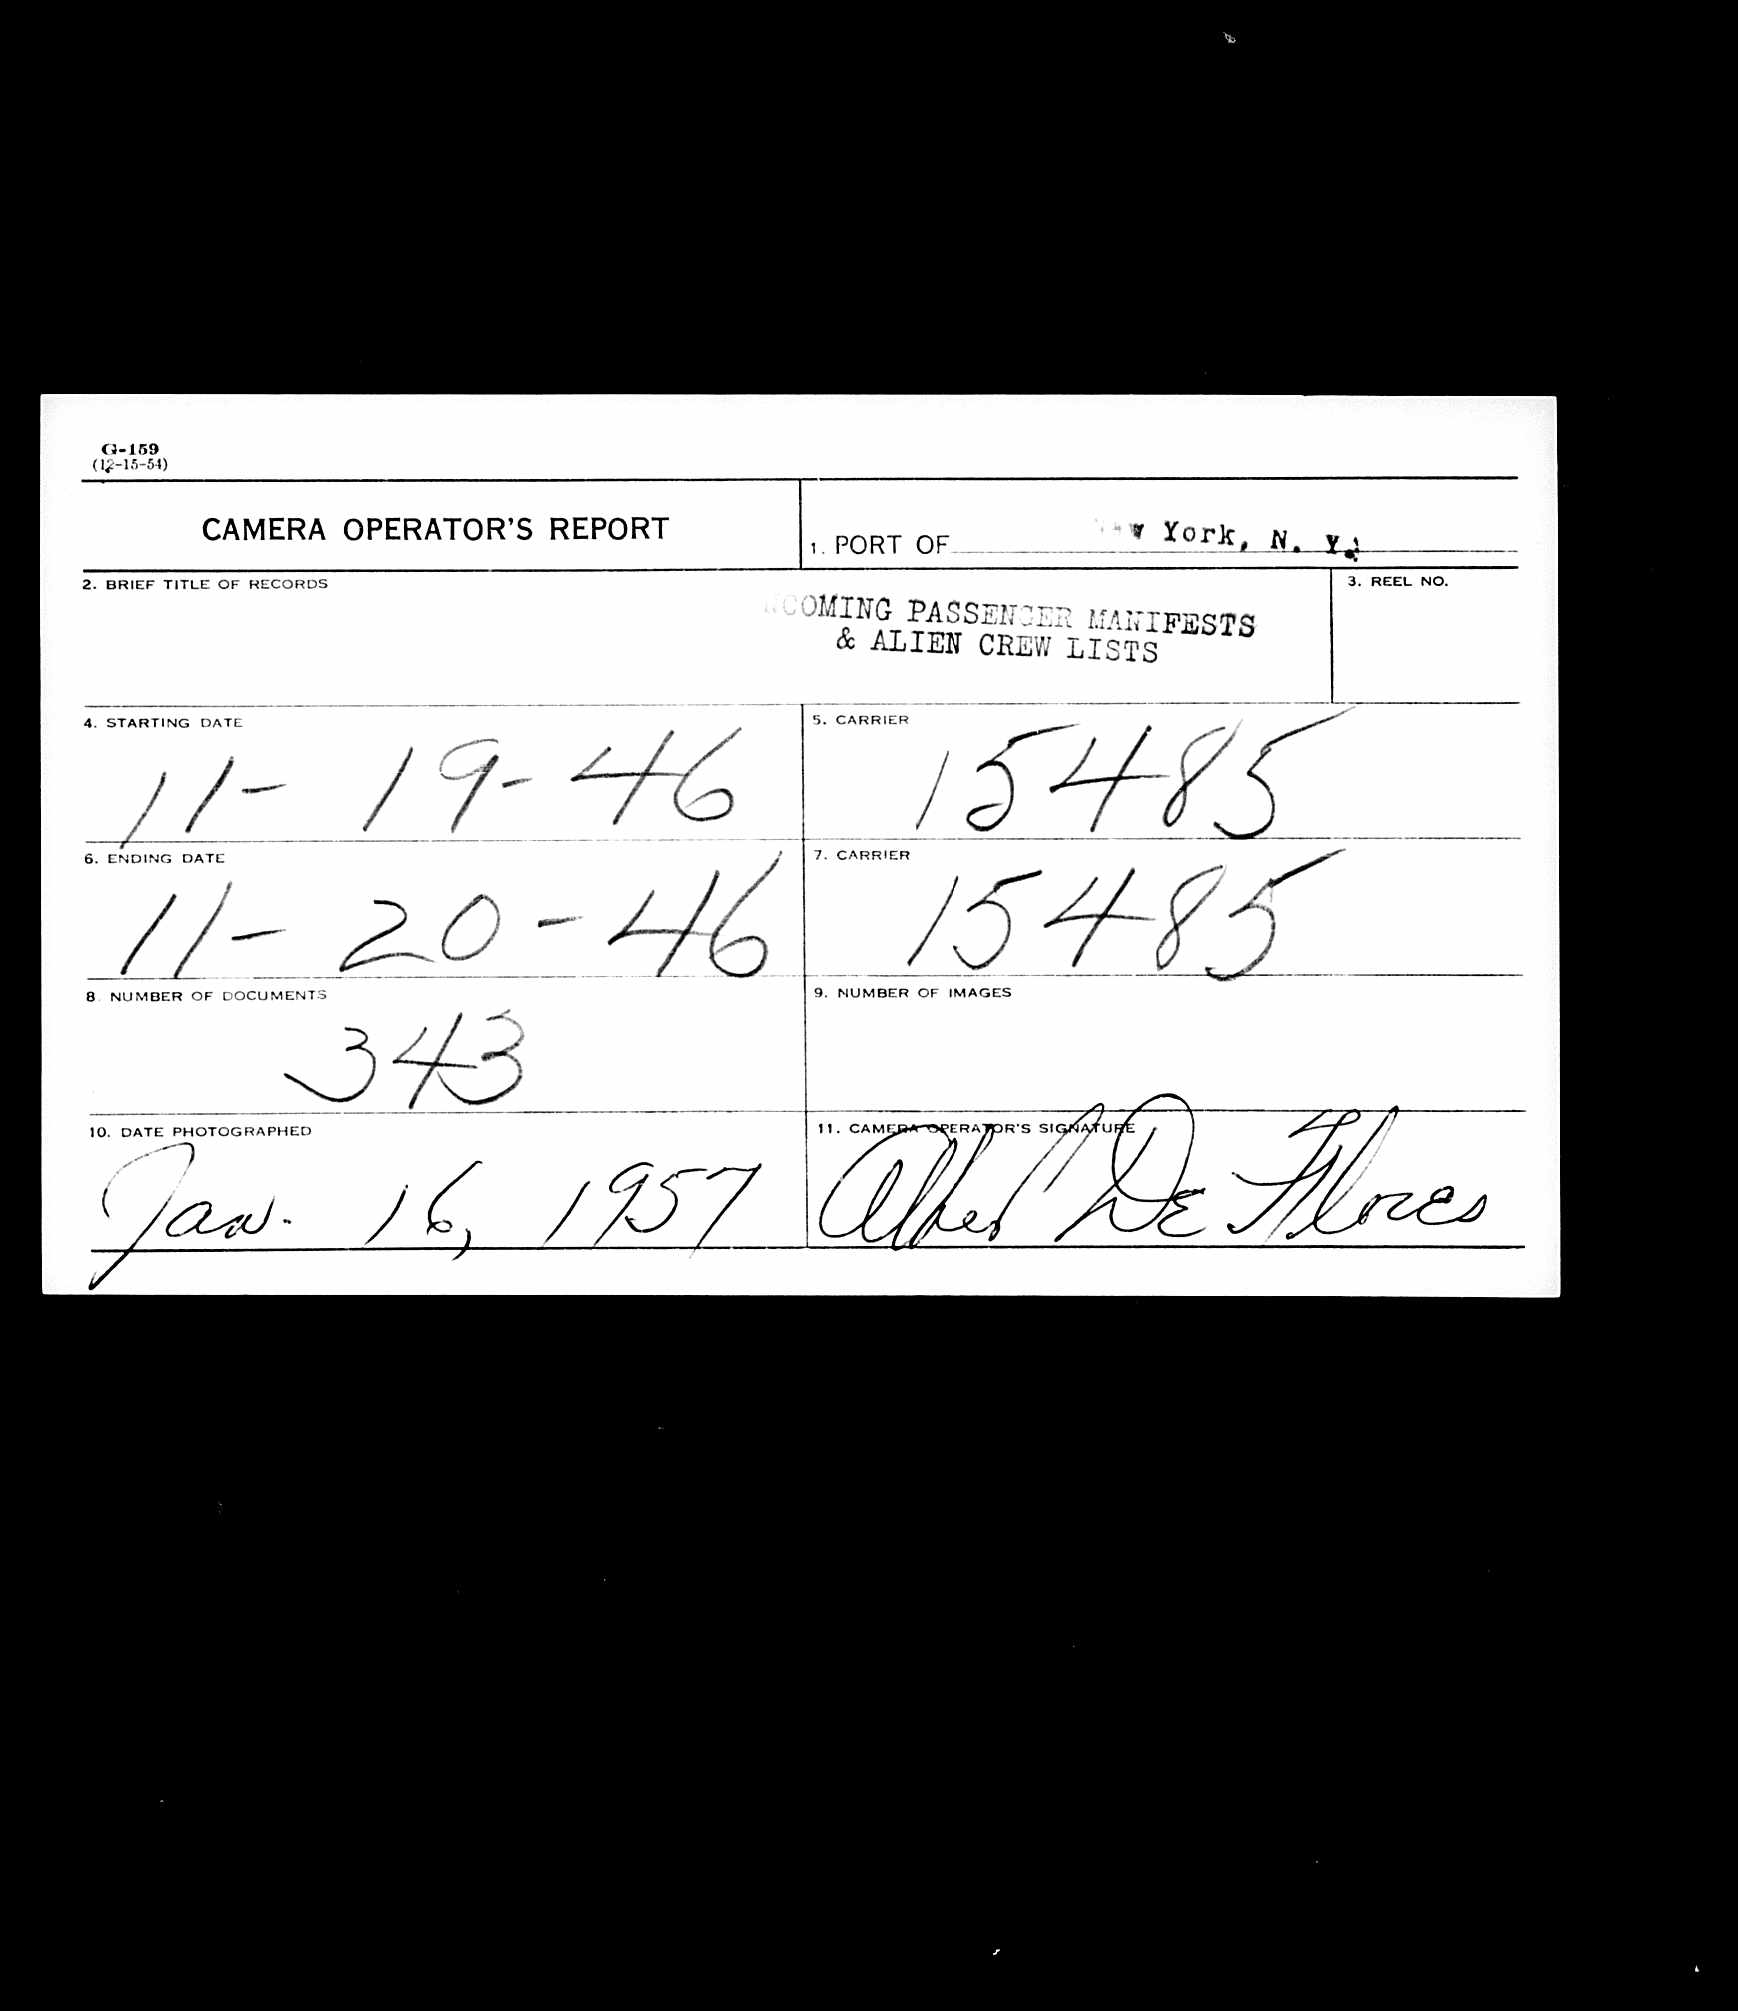 G-159
(12-15-54)
CAMERA OPERATOR'S REPORT
1. PORT OF York, N. Y.
2. BRIEF TITLE OF RECORDS
NCOMING PASSENGER MANIFESTS
& ALIEN CREW LISTS
3. REEL NO.
4. STARTING DATE
11- 19-46
5. CARRIER
15485
6. ENDING DATE
11- 20-46
7. CARRIER
15485
8. NUMBER OF DOCUMENTS
343
9. NUMBER OF IMAGES
10. DATE PHOTOGRAPHED
Jan. 16, 1957
11. CAMERA OPERATOR'S SIGNATURE
De Flores